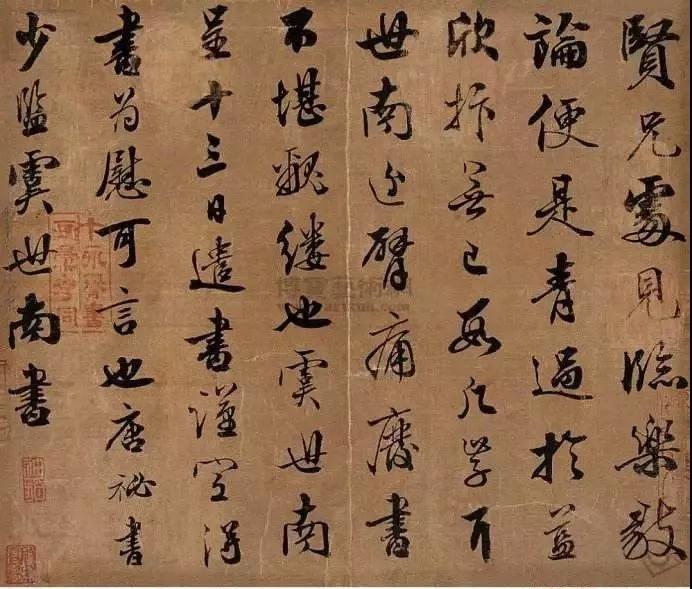 賢兄處見臨樂毅
論便是青過於
欣抃無已數凡學
世南近臂痛廢書
不堪覶縷也虞世南
呈十三日遣書謹空得
書為慰可言也唐祕書
少監虞世南書